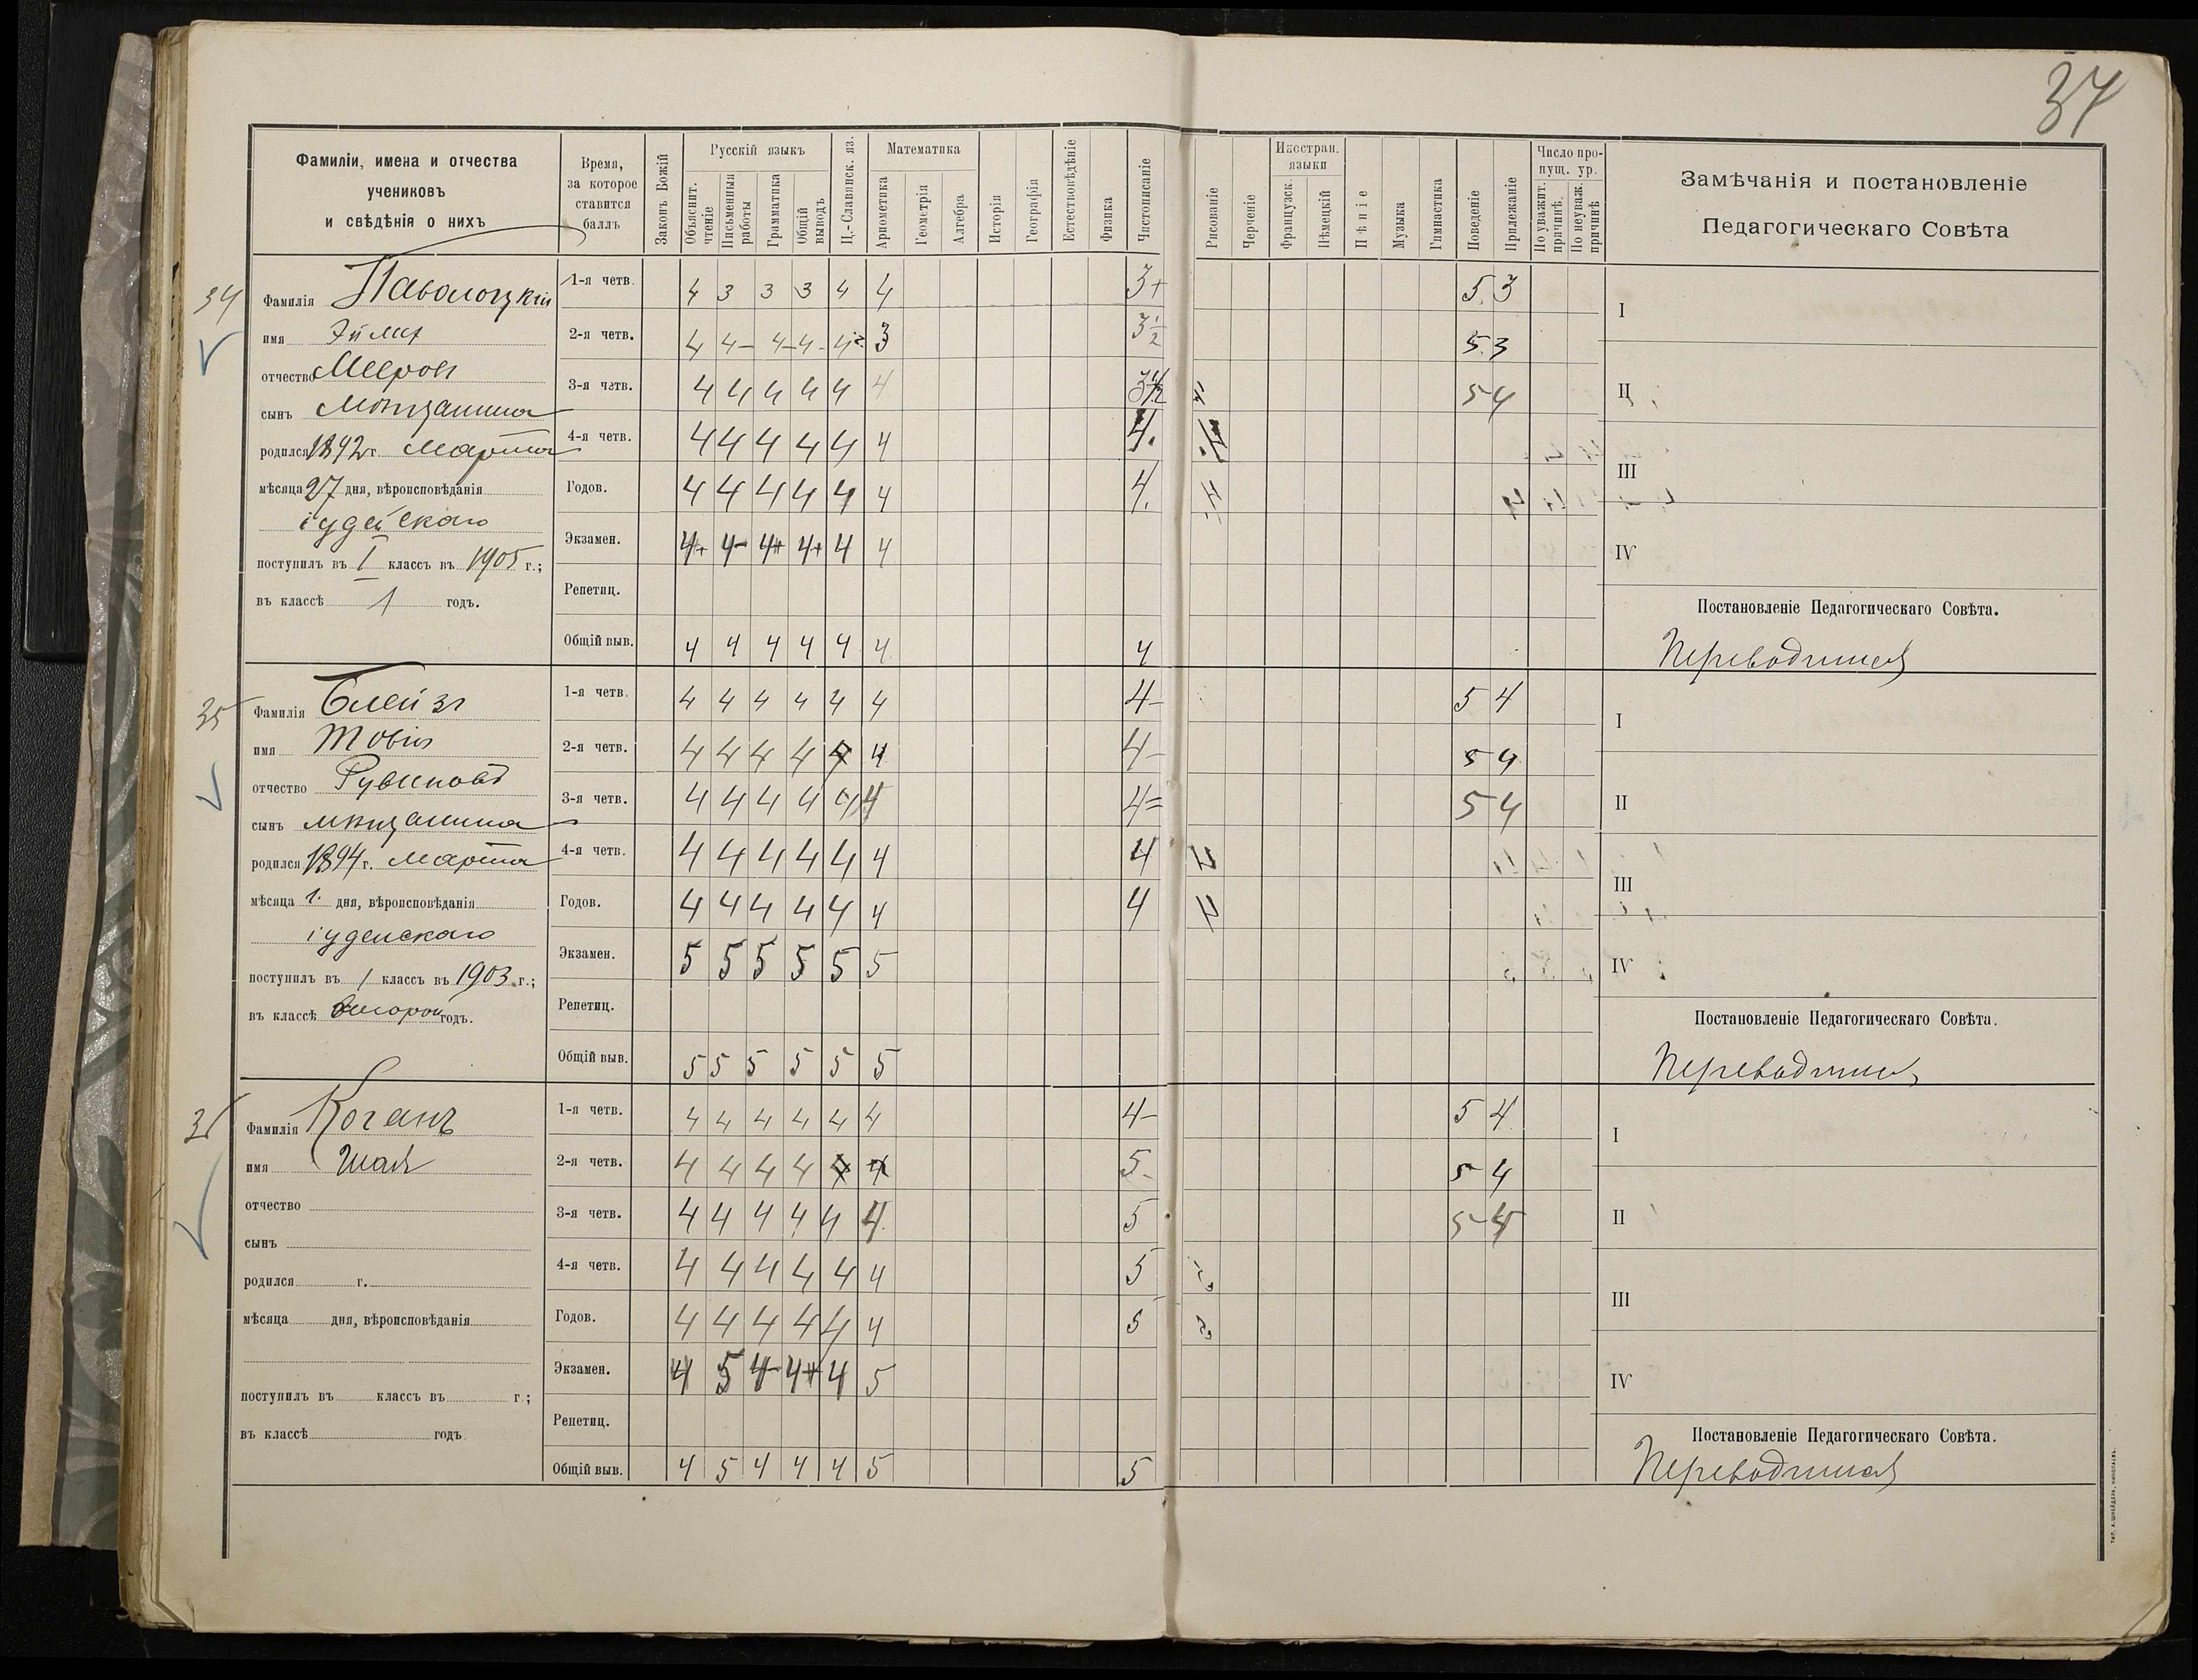 37
Фамиліи, имена и отчества
учениковъ
и свѣдѣнія о нихъ
Время,
за которое
ставится
баллъ
Законъ Божій
Русскій языкъ
Объяснит. чтеніе
Письменныя работы
Грамматика
Общій выводъ
Ц.-Славянск. яз.
Математика
Ариѳметика
Геометрія
Алгебра
Исторія
Географія
Естествовѣдѣніе
Физика
Чистописаніе
Рисованіе
Черченіе
Иностран. языки
Французск.
Нѣмецкій
Пѣніе
Музыка
Гимнастика
Поведеніе
Прилежаніе
Число пропущ. ур.
По уважит. причинѣ.
По неуваж. причинѣ
Замѣчанія и постановленіе
Педагогическаго Совѣта
34
Фамилія Паволоцкій
имя
отчество Мееровъ
сынъ Мѣщанина
родился 1892 г. Марта
мѣсяца 27 дня, вѣроисповѣданія
іудейскаго
поступилъ въ I классъ въ 1905 г.;
въ классѣ 1 годъ.
1-я четв. 4 3 3 3 4 4 3+ 5 3
2-я четв. 4 4- 4- 4- 4 3 3½ 5 3
3-я четв. 4 4 4 4 4 4 3½ 5 4
4-я четв. 4 4 4 4 4 4 4.
Годов. 4 4 4 4 4 4 4.
Экзамен. 4+ 4- 4+ 4+ 4 4
Репетиц.
Общій выв. 4 4 4 4 4 4 4
I
II
III
IV
Постановленіе Педагогическаго Совѣта.
Переводится
35
Фамилія Блейзъ
имя Товій
отчество Рувиновъ
сынъ мѣщанина
родился 1894 г. Марта
мѣсяца 1. дня, вѣроисповѣданія
іудейскаго
поступилъ въ 1 классъ въ 1903 г.;
въ классѣ второй годъ.
1-я четв. 4 4 4 4 4 4 4- 5 4
2-я четв. 4 4 4 4 4 4 4- 5 4
3-я четв. 4 4 4 4 4 4 4= 5 4
4-я четв. 4 4 4 4 4 4 4
Годов. 4 4 4 4 4 4 4
Экзамен. 5 5 5 5 5 5
Репетиц.
Общій выв. 5 5 5 5 5 5
I
II
III
IV
Постановленіе Педагогическаго Совѣта.
Переводится
Фамилія Коганъ
имя Шая
отчество
сынъ
родился г.
мѣсяца дня, вѣроисповѣданія
поступилъ въ классъ въ г.;
въ классѣ годъ
1-я четв. 4 4 4 4 4 4 4- 5 4
2-я четв. 4 4 4 4 4 4 5- 5 4
3-я четв. 4 4 4 4 4 4 5 5
4-я четв. 4 4 4 4 4 4 5
Годов. 4 4 4 4 4 4 5
Экзамен. 4 5 4- 4+ 4 5
Репетиц.
Общій выв. 4 5 4 4 4 5 5
I
II
III
IV
Постановленіе Педагогическаго Совѣта.
Переводится